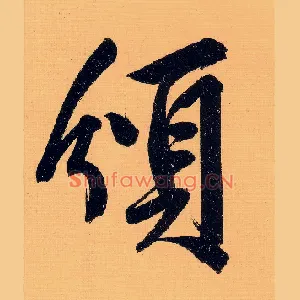 頒
Shufawang.CN